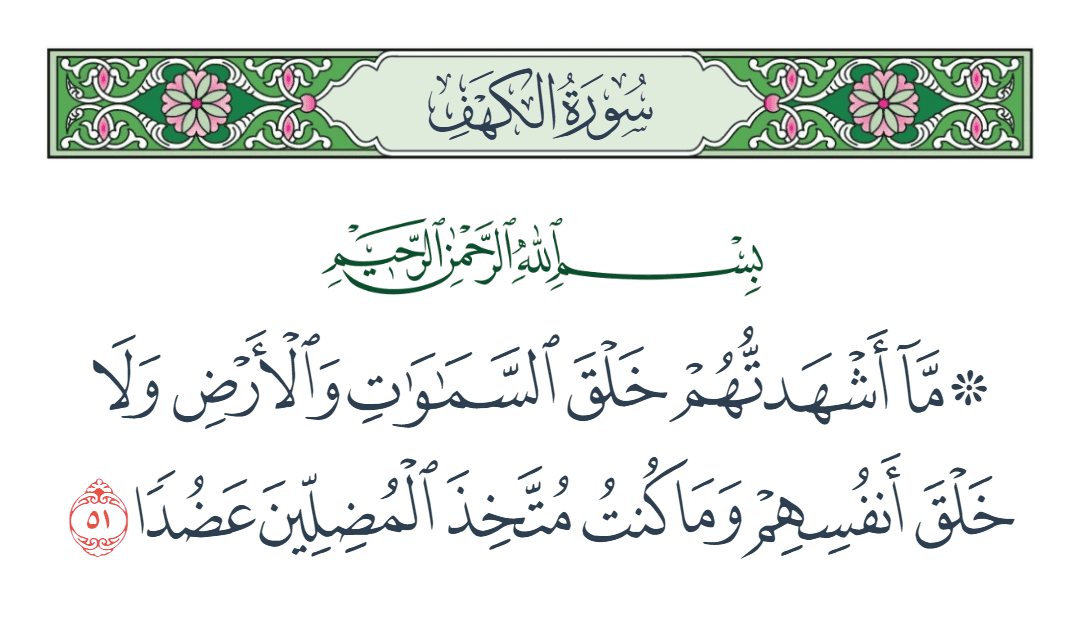 سُورَةُ الكَهْفِ
بِسْمِ ٱللَّهِ ٱلرَّحْمَٰنِ ٱلرَّحِيمِ
۞ مَّآ أَشْهَدتُّهُمْ خَلْقَ ٱلسَّمَٰوَٰتِ وَٱلْأَرْضِ وَلَا
خَلْقَ أَنفُسِهِمْ وَمَا كُنتُ مُتَّخِذَ ٱلْمُضِلِّينَ عَضُدًا ٥١